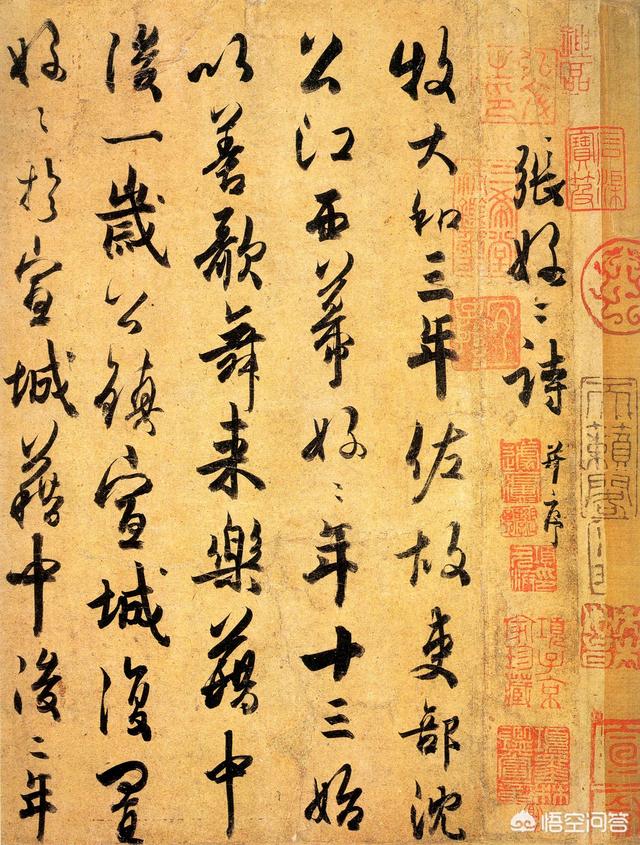 張好〻詩 并序
牧大和三年佐故吏部沈
公江西幕好〻年十三始
以善歌舞来樂籍中
後一歲公鎮宣城復置
好〻於宣城籍中後二年
天籟閣
項子京家珍藏
悟空问答